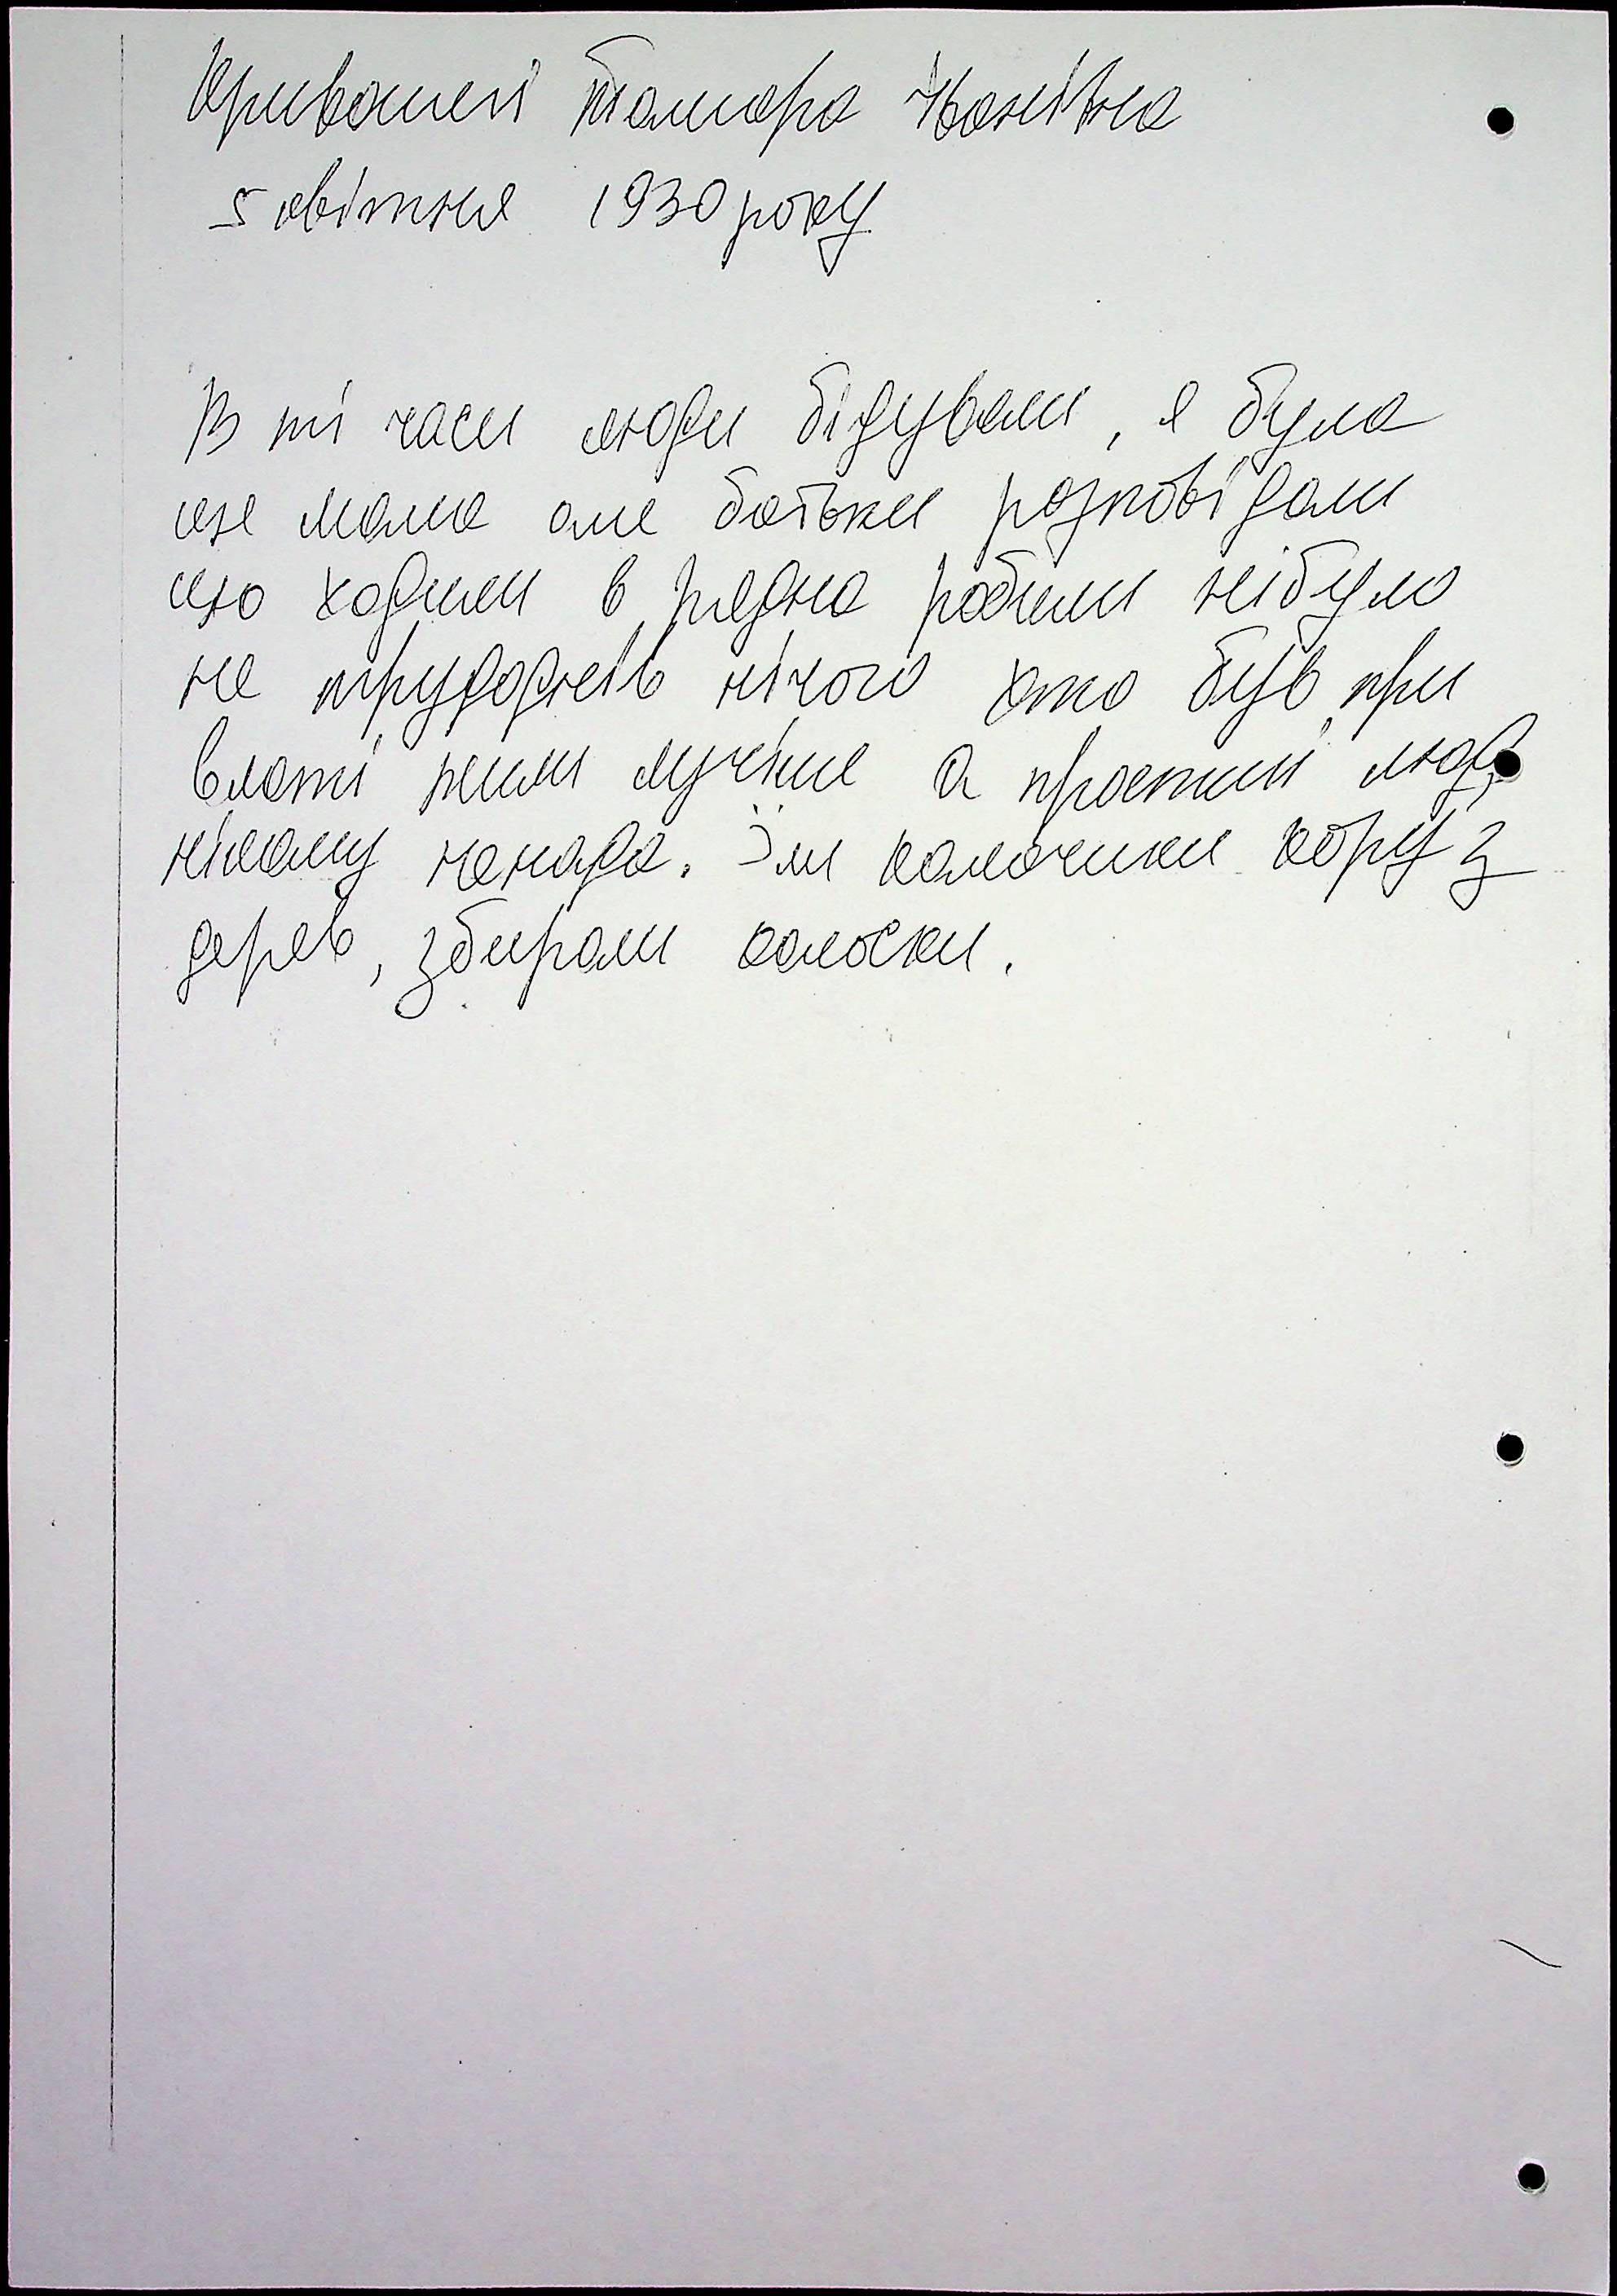 Кривошеї Тамара Іванівна
5 квітня 1930 року
В ті часи люди бідували, я була
ще мала але батьки розповідали
що ходили в рядна робили небуло
на трудоднів нічого хто був при
властi жили лучше а простий люд
нікому ненада. Їли калачики кору з
дерев, збирали колоски.